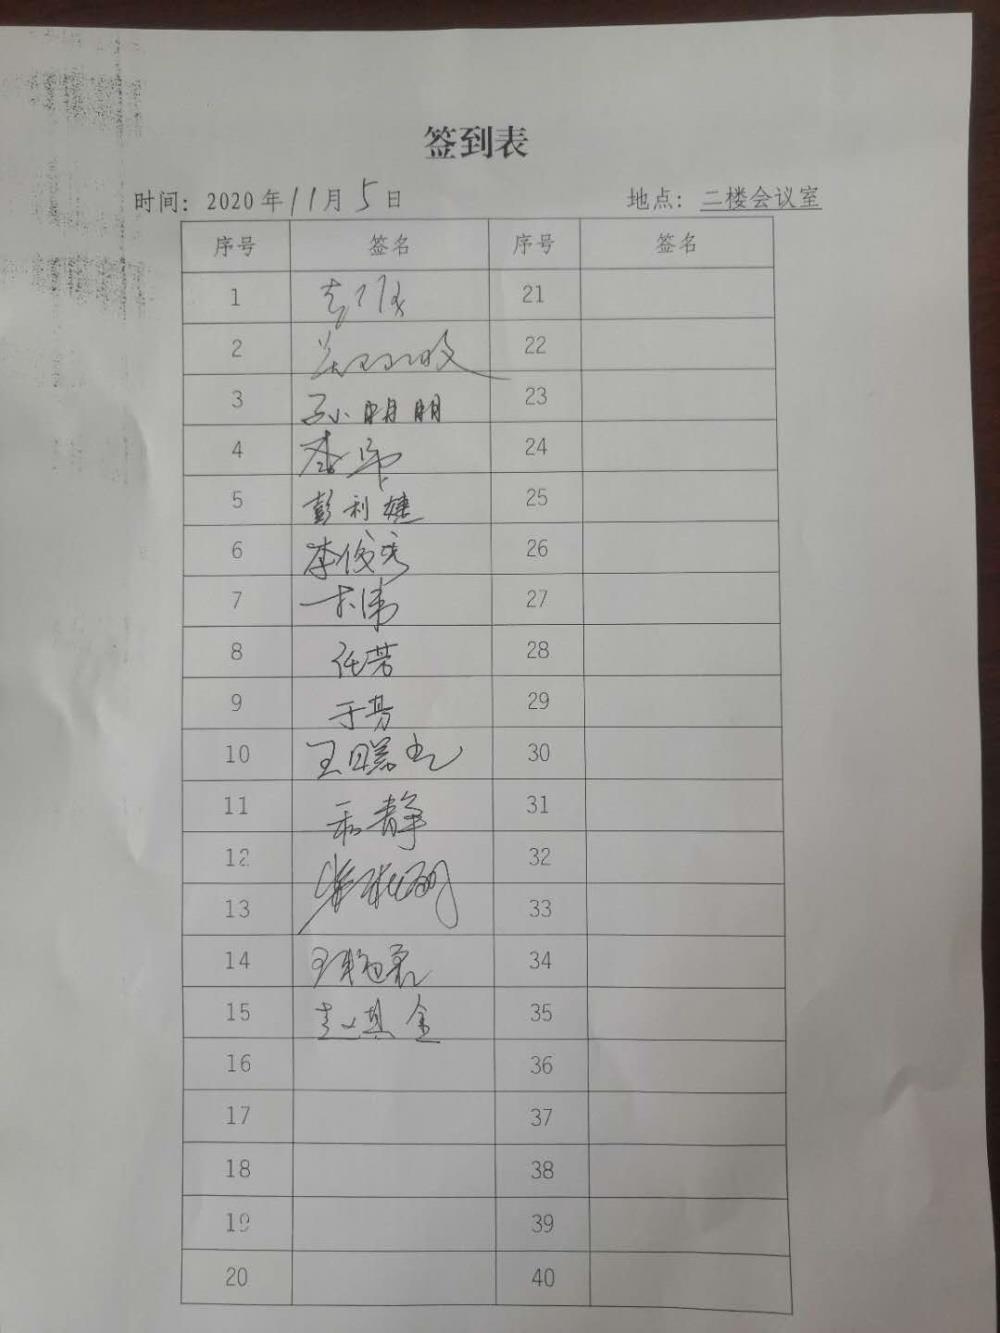 签到表
时间: 2020年11月5日 地点: 二楼会议室
序号 签名 序号 签名
1 21
2 22
3 孙明明 23
4 24
5 彭利婕 25
6 李俊秀 26
7 27
8 任芳 28
9 于芳 29
10 30
11 静 31
12 32
13 33
14 34
15 赵其金 35
16 36
17 37
18 38
19 39
20 40